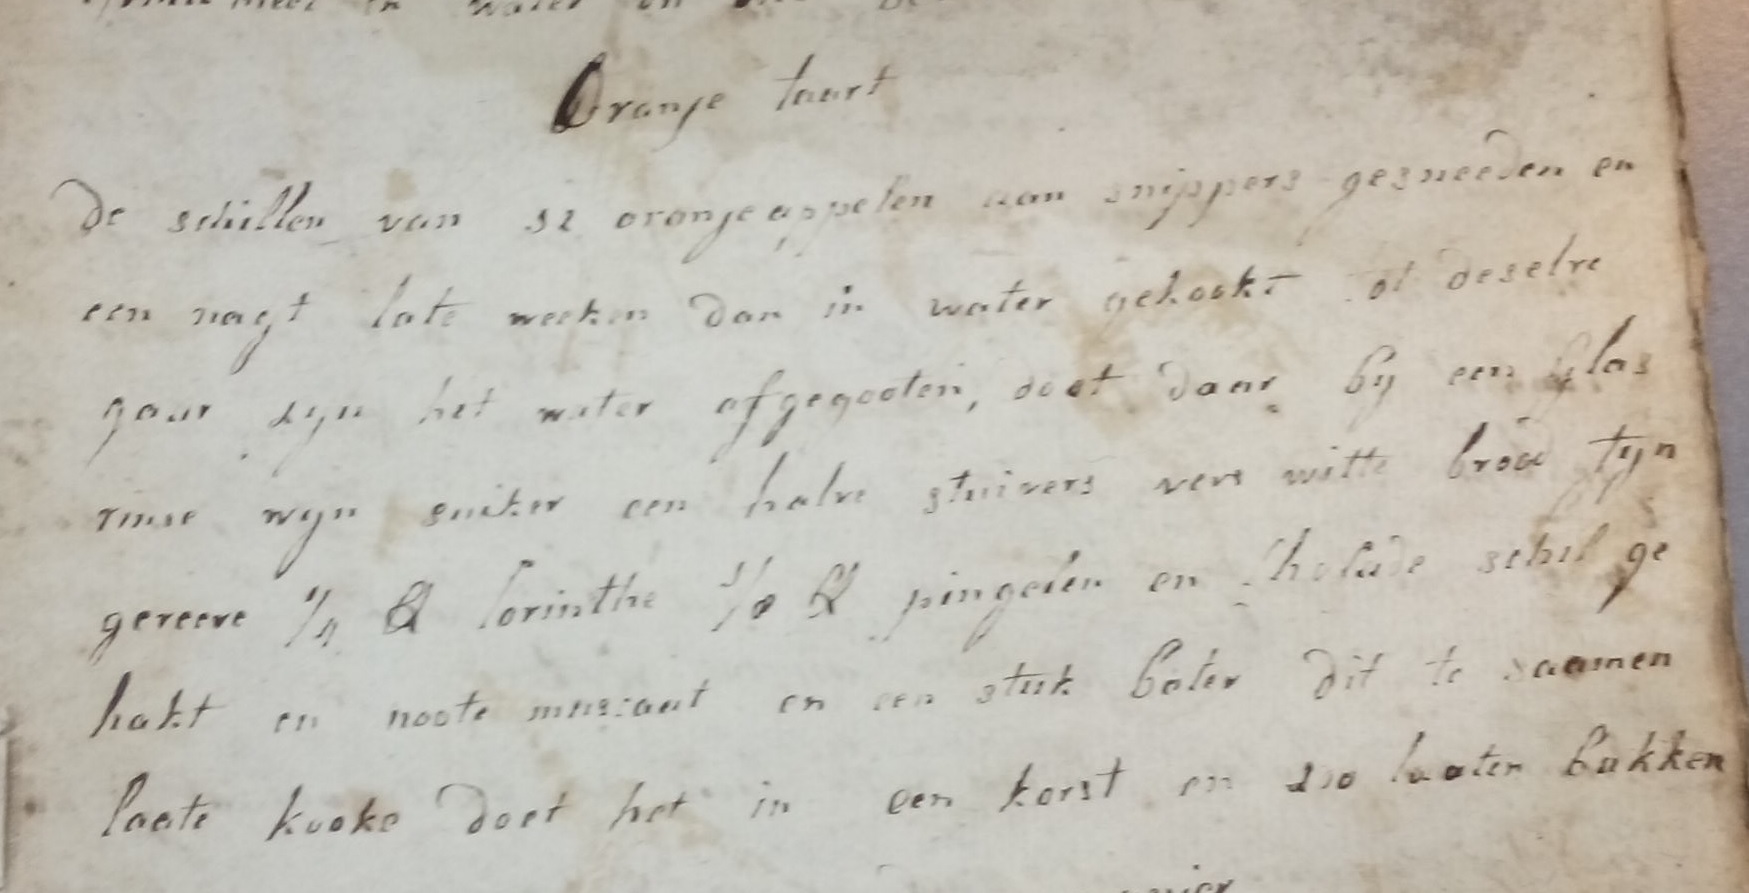 Oranje taart
De schillen van 12 oranjeappelen aan snippers gesneeden en
een nagt late weeken dan in water gekookt tot deselve
gaar zyn het water afgegooten, doet daar by een glas
rinse wyn suiker een halve stuivers vers witte brood fyn
gereeve 1/4 ℔ Corinthe 1/8 ℔ pingelen en schil ge
hakt en noote muscaat en een stuk boter dit te saamen
laate kooke doet het in een korst en zoo laaten bakken